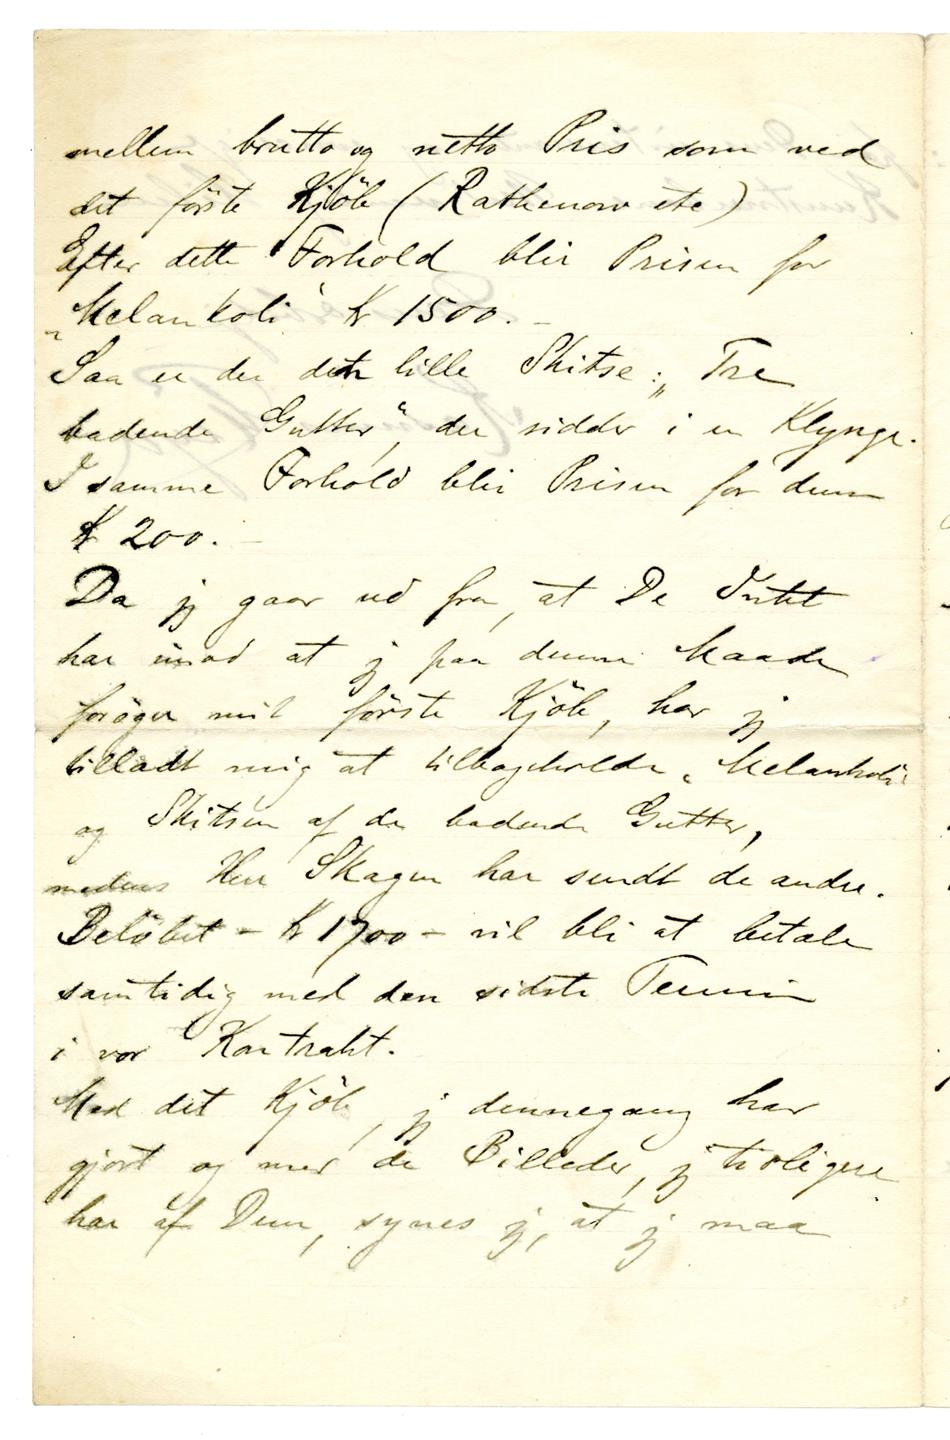 mellem brutto og netto Pris som ved
det förste Kjöb (Rathenow etc)
Efter dette Forhold blir Prisen for
„Melankoli" Kr 1500.-
Saa er der den lille Skitse: „Tre
badende Gutter", der sidder i en Klynge.
I samme Forhold blir Prisen for denne
Kr 200.-
Da jeg gaar ud fra, at De Intet
har imod at jeg paa denne Maade
foröger mit förste Kjöb, har jeg
tilladt mig at tilbageholde „Melankoli"
og Skitsen af de badende Gutter,
medens Herr Skagen har sendt de andre.
Belöbet - Kr 1700 - vil bli at betale
samtidig med den sidste Termin
i vor Kontrakt.
Med det Kjöb, jeg dennegang har
gjort og med de Billeder, jeg tidligere
har af Dem, synes jeg, at jeg maa